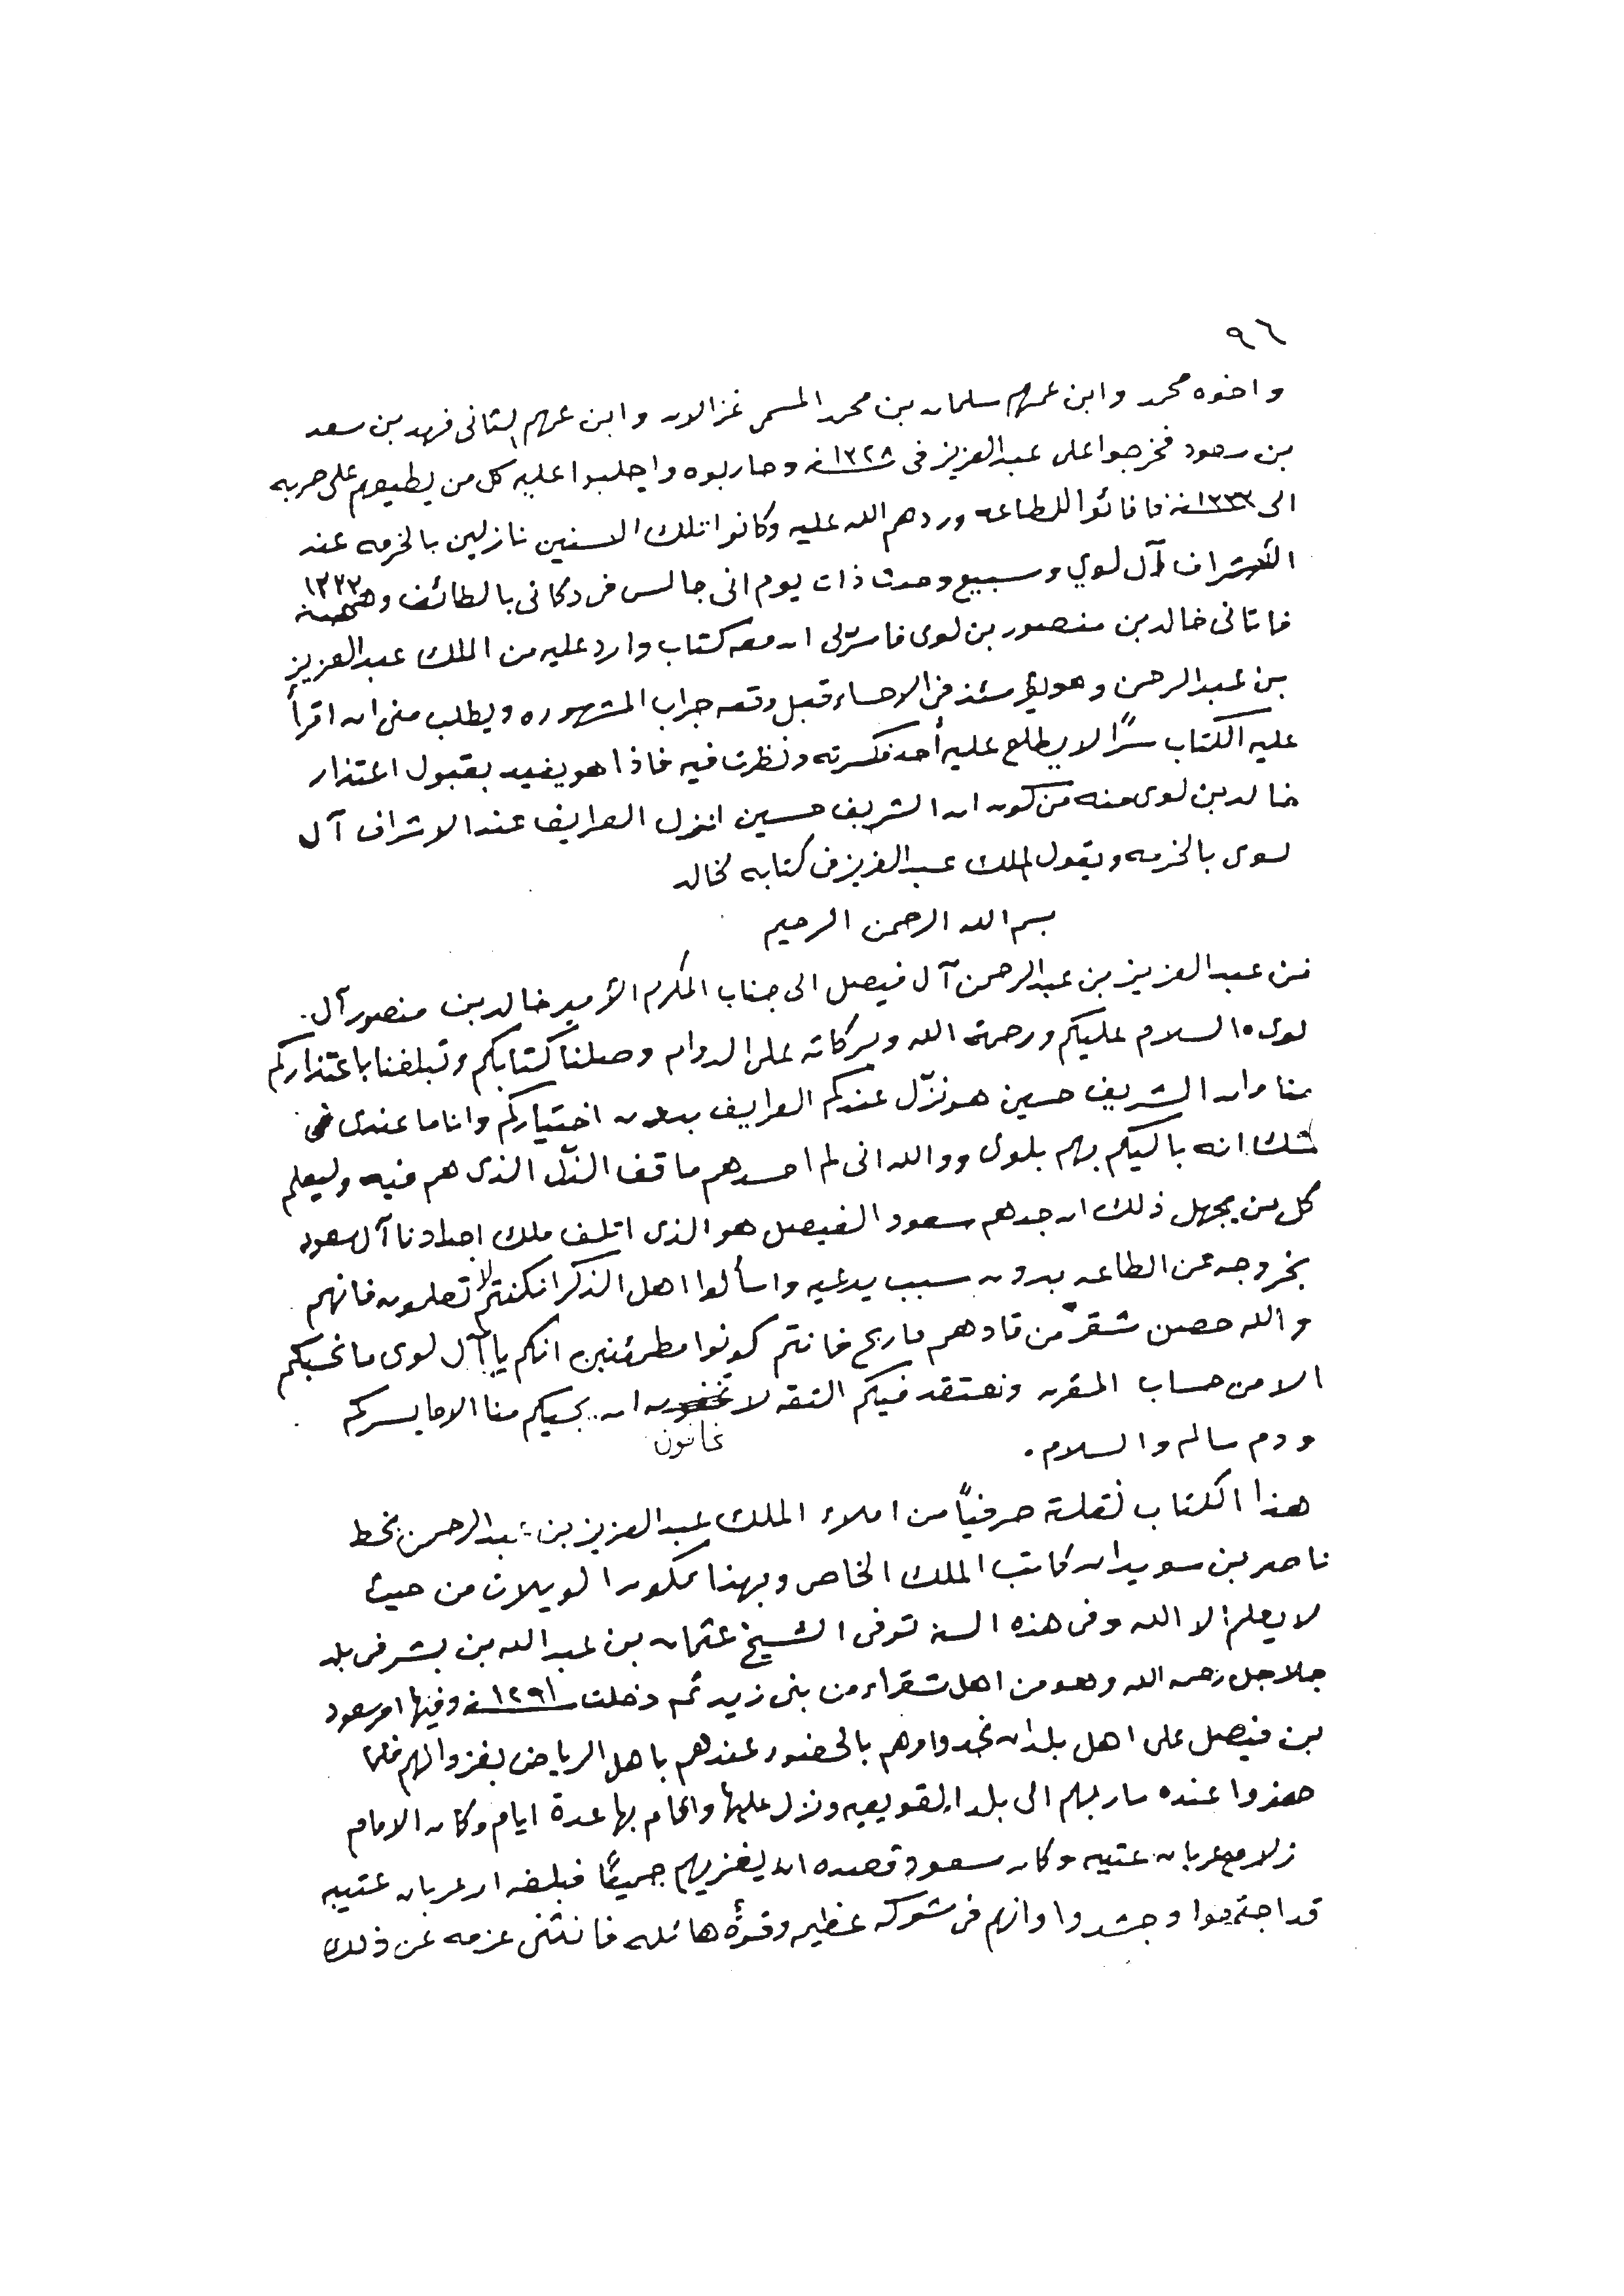 ٩٦
واخوه محمد وابن عمهم سلمان بن محمد المسمى غزالان وابن عمهم الثانى فهد بن سعد
بن سعود فخرجوا على عبدالعزيز فى ١٣٢٨سنه وحاربوه واجلبوا عليه كل من يطيعهم على حربه
الى ١٣٣٣سنه فافائوا للطاعه وردهم الله عليه وكانوا تلك السنين نازلين بالخرمه عند
الأشراف آل لوي وسبيع وحدث ذات يوم انى جالس فى دكانى بالطائف وهى سنه ١٣٣٣
فاتانى خالد بن منصور بن لوى فاسرّ لى ان معه كتاب وارد عليه من الملك عبدالعزيز
بن عبدالرحمن وهو يومئذ فى الاحساء قبل وقعه جراب المشهوره ويطلب منى ان اقرأ
عليه الكتاب سرًا لا يطلع عليه أحد فكسرته ونظرت فيه فاذا هو يفيد بقبول اعتذار
خالد بن لوى منه من كون ان الشريف حسين انزل العرايف عند الاشراف آل
لوى بالخرمه ويقول الملك عبدالعزيز فى كتابه لخالد
بسم الله الرحمن الرحيم
من عبدالعزيز بن عبدالرحمن آل فيصل الى جناب المكرم الأمير خالد بن منصور آل
لوى ٠ السلام عليكم ورحمة الله وبركاته على الدوام وصلنا كتابكم وتبلغنا باعتذاركم
منا وان الشريف حسين هو نزّل عندكم العرايف بدون اختياركم وانا ما عندى
شك انه باليكم بهم بلوى ووالله انى لم احسدهم ماقف الذل الذى هم فيه وليعلم
كل من يجهل ذلك ان جدهم سعود الفيصل هو الذى اتلف ملك اجدادنا آل سعود
بخروجه عن الطاعه بدون سبب يدعيه واسألوا اهل الذكر انكنتم لا تعلمون فانهم
والله حصن شقر من قادهم ما ربح فانتم كونوا مطمئنين انكم يا آل لوى ما نحسبكم
الا من حساب المقرن ونعتقد فيكم الثقه لا تخافون ان يجيكم منا الا ما يسركم
ودم سالم والسلام ٠
هذا الكتاب نقلته حرفيًا من املاء الملك عبدالعزيز بن عبدالرحمن بخط
ناصر بن سويدان كاتب الملك الخاص وبهذا تكون الويلات من حيث
لا يعلم الا الله وفى هذه السنه توفى الشيخ عثمان بن عبدالله بن بشر فى بلد
جلاجل رحمه الله وهو من اهل شقراء من بنى زيد ثم دخلت ١٢٩١سنه وفيها امر سعود
بن فيصل على اهل بلدان نجد وامرهم بالحضور عندهم باهل الرياض بغزوانهم فلما
حضروا عنده سار بهم الى بلد القويعيه ونزل عليها واقام بها عدة ايام وكان الامام
نازلا مع عربان عتيبه وكان سعود قصده ان يغزيهم جميعًا فبلغه ان عربان عتيبه
قد اجتمعوا وحشدوا وانهم فى شوكه عظيمه وقوة هائله فانثنى عزمه عن ذلك